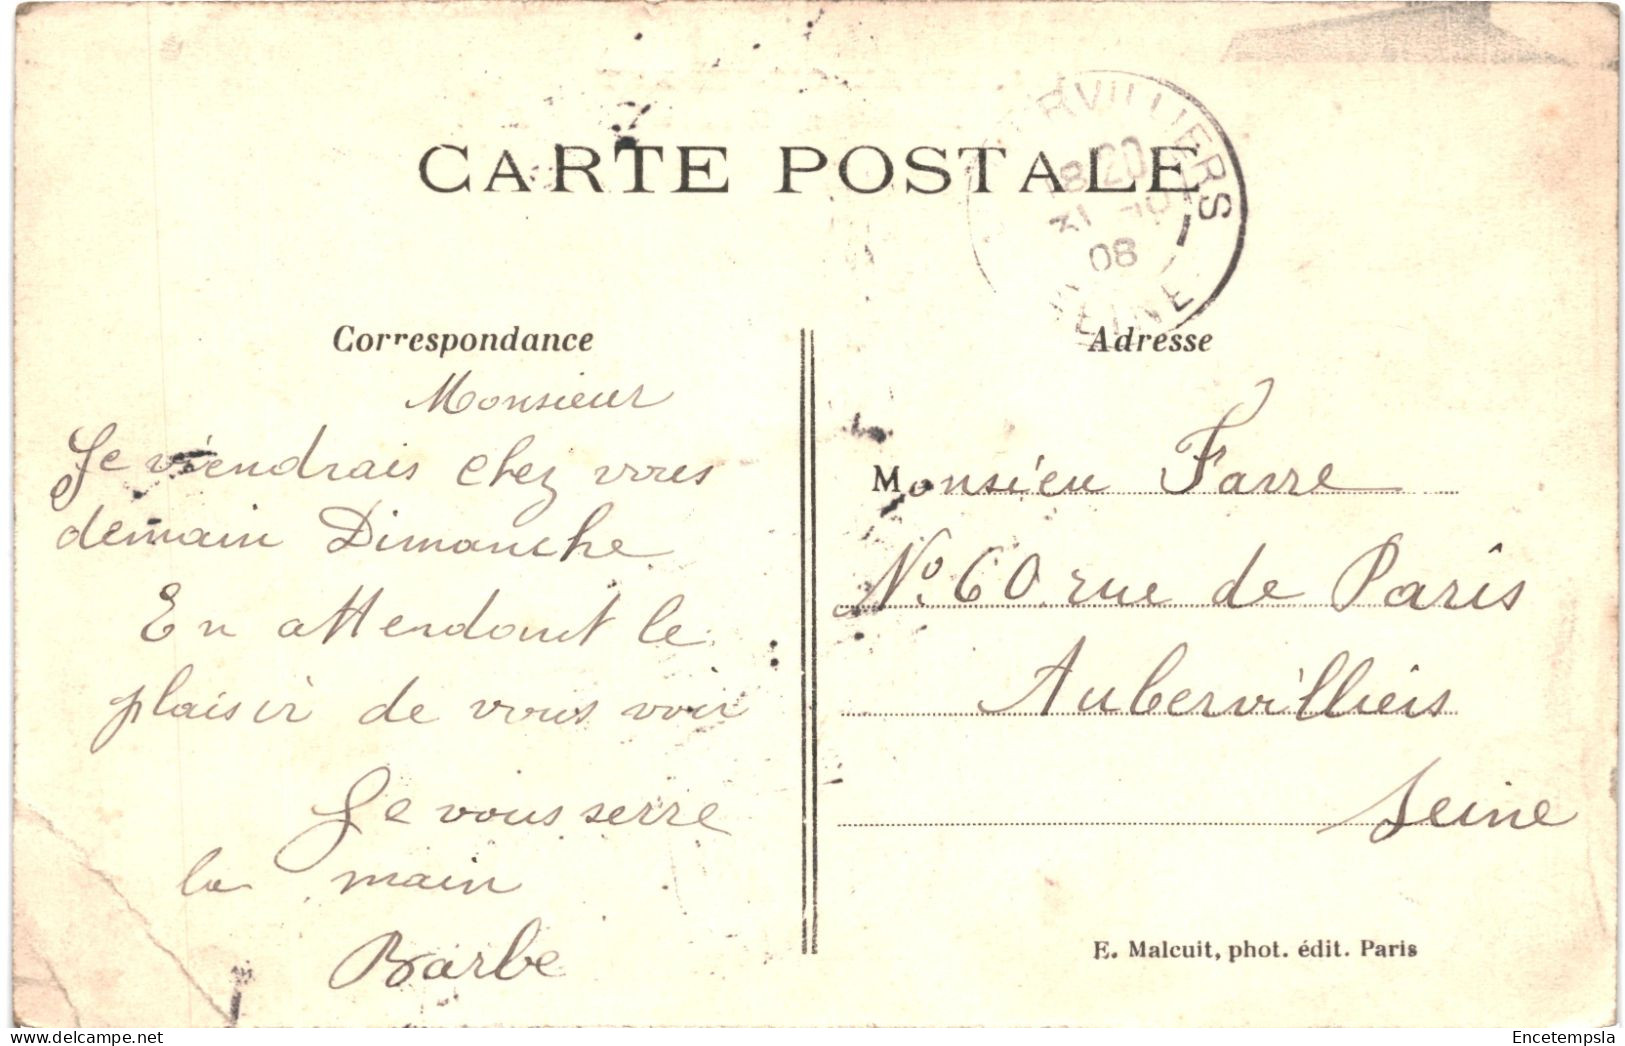 CARTE POSTALE
RVILLIERS
08
EINE
Correspondance
Monsieur
Je viendrais chez vous
demain Dimanche
En attendant le
plaisir de vous voir
Je vous serre
la main
Barbe
Adresse
Monsieu Favre
No. 60 rue de Paris
Aubervilliers
Seine
E. Malcuit, phot. édit. Paris
Encetempsla